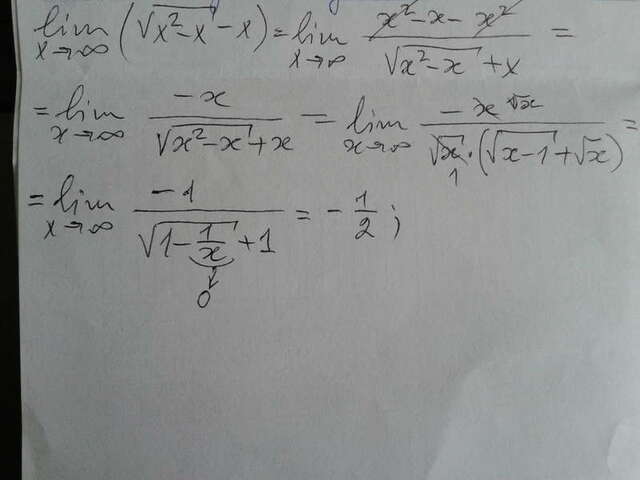 lim x→∞ (√(x²-x) - x) = lim x→∞ (x² - x - x²)/(√(x²-x) + x) =
= lim x→∞ (-x)/(√(x²-x) + x) = lim x→∞ (-x √x)/(√x 1 · (√(x-1) + √x)) =
= lim x→∞ (-1)/(√(1 - 1/x) + 1) = -1/2 ;
0